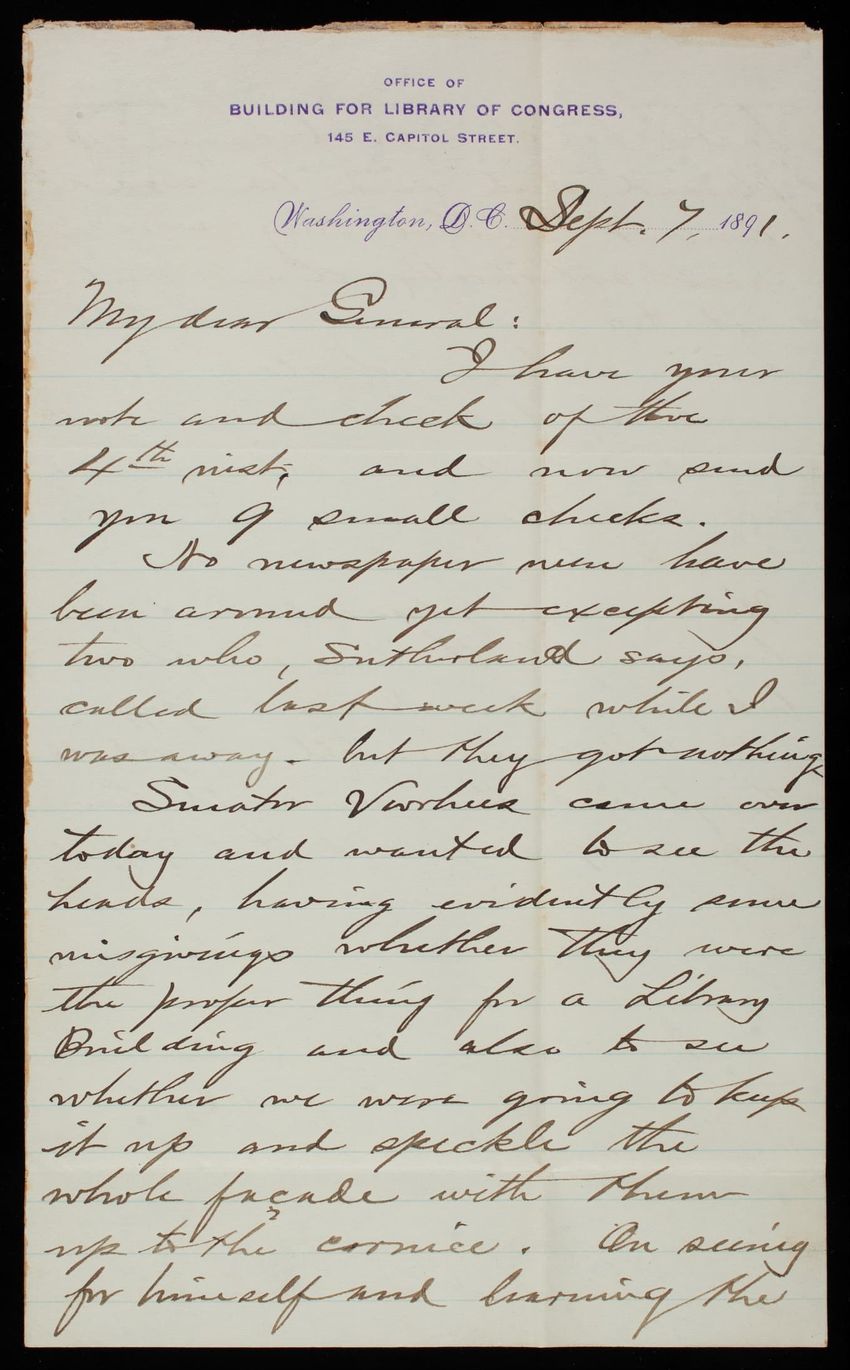 OFFICE OF
BUILDING FOR LIBRARY OF CONGRESS,
145 E. CAPITOL STREET.
Washington, D.C. Sept. 7, 1891.
My dear General:
I have your
note and check of the
4th inst, and now send
you 9 small checks.
No newspaper men have
been around yet excepting
two who, Sutherland says,
called last week while I
was away - but they got nothing
Senator Voorhees came over
today and wanted to see the
heads, having evidently some
misgivings whether they were
the proper thing for a Library
Building and also to see
whether we were going to keep
it up and speckle the
whole façade with them
up to the cornice. On seeing
for himself and learning the